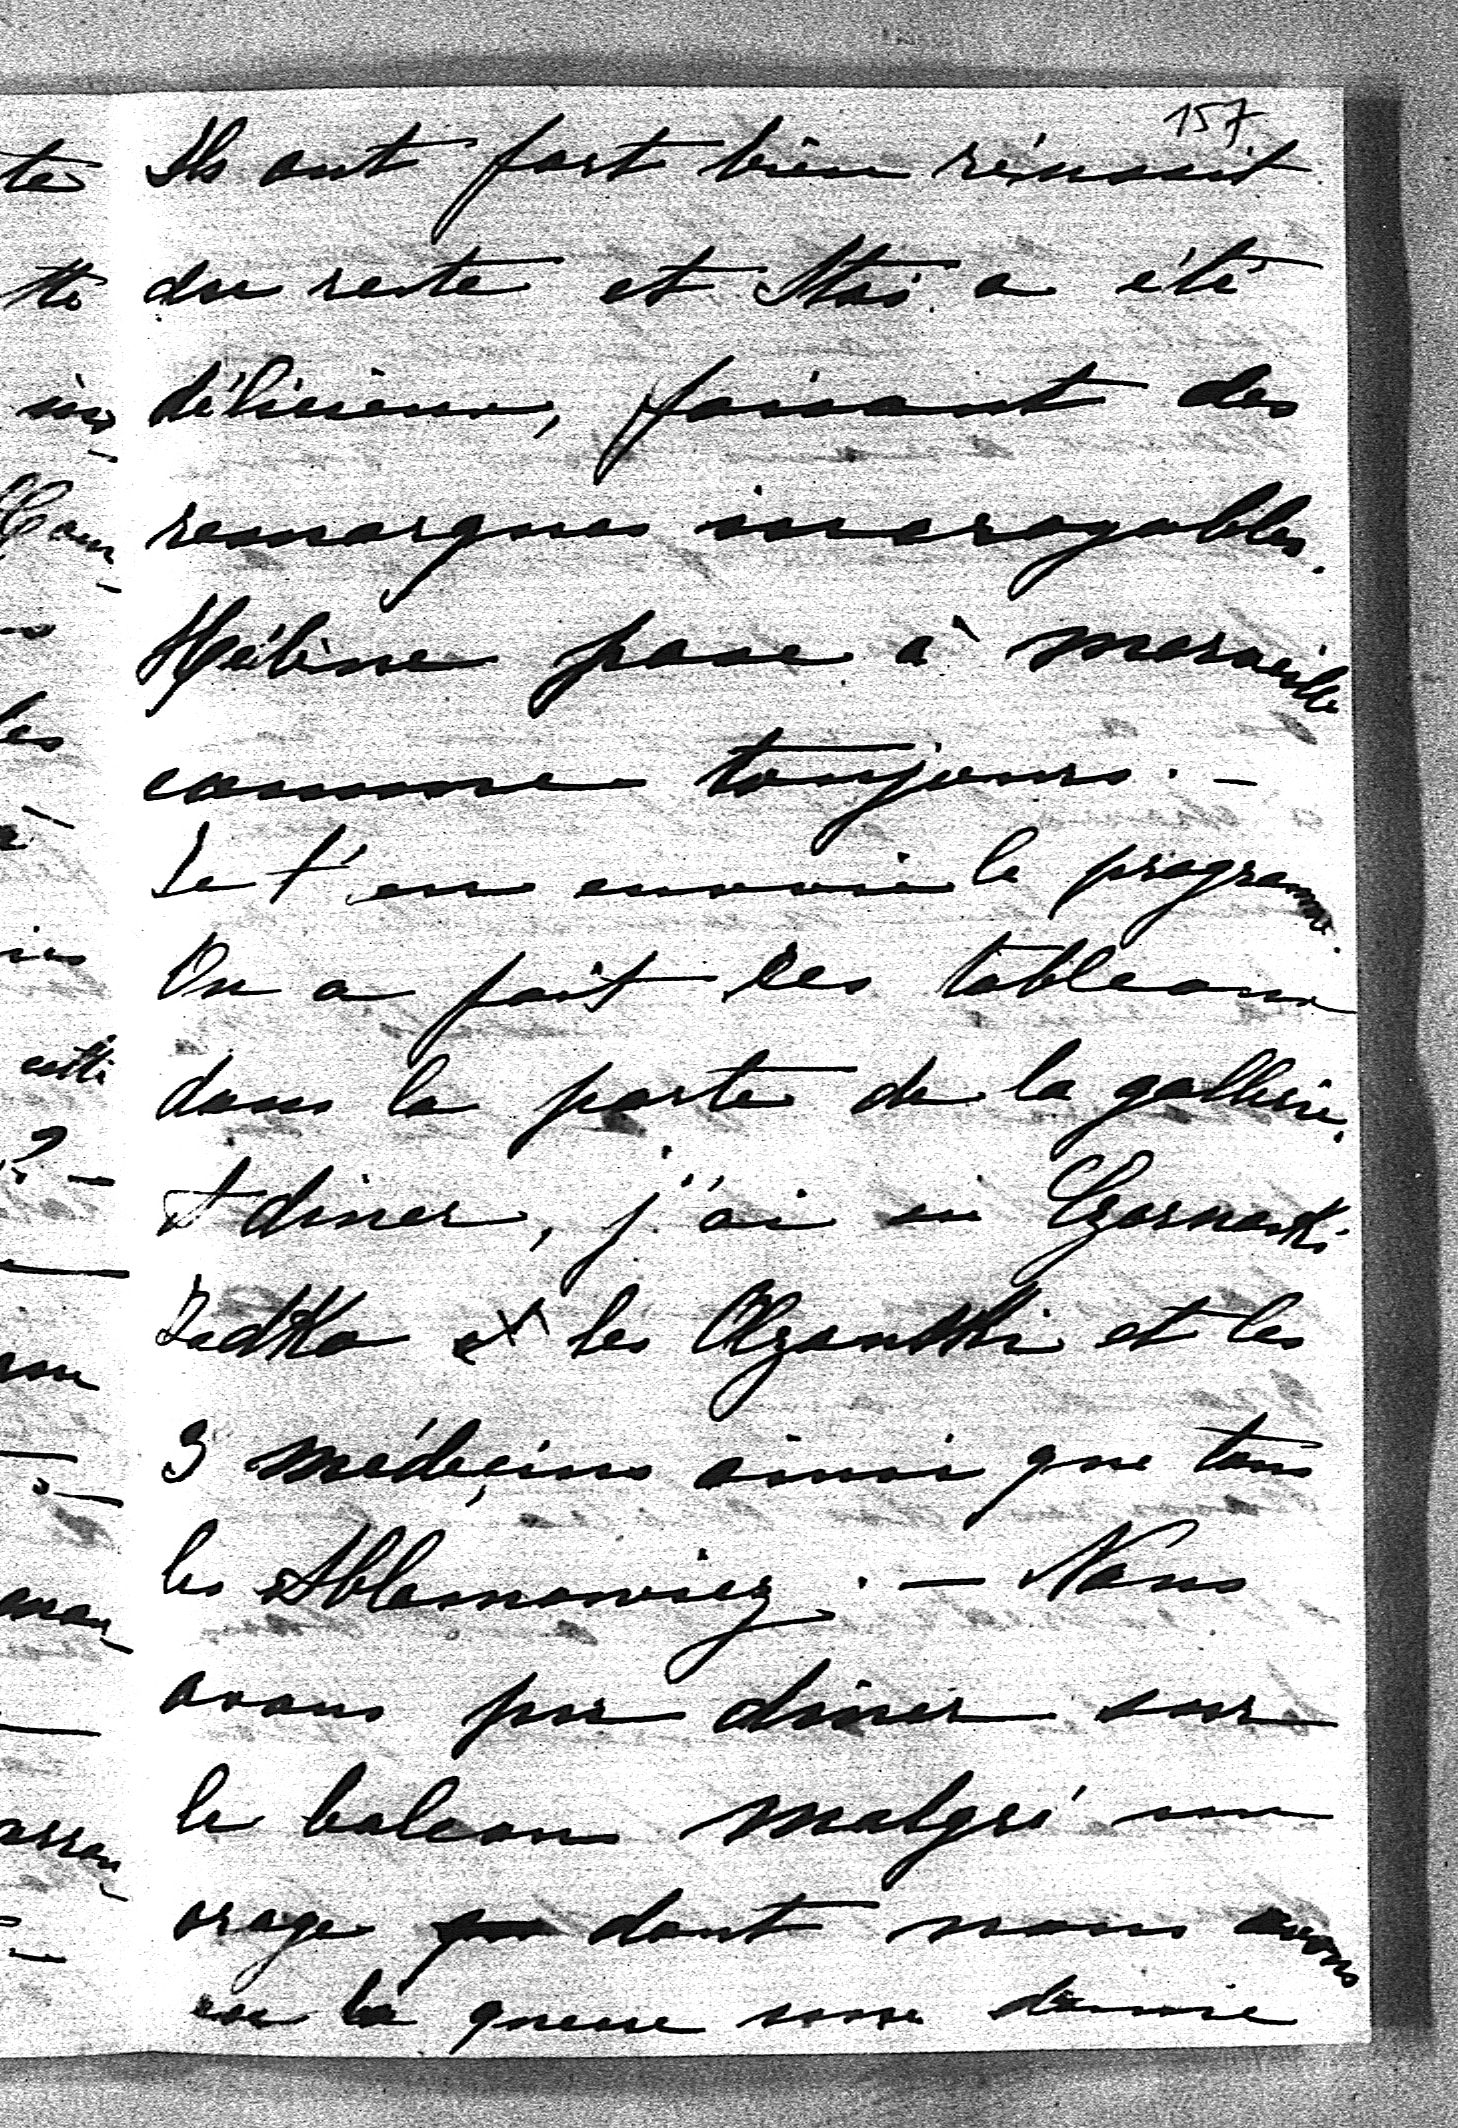 157
Ils ont fort bien réussit
du reste et Stas a été
délicieux, faisant des
remarques incroyables.
Hélène pose à merveille
comme toujours. —
Je t'en envoie le programme.
On a fait les tableaux
dans la porte de la gallerie.
A diner, j'ai eu Czarnowski
les et les
3 médeçins ainsi que tous
les Ablamowicz. — Nous
avons pu diner sur
le balcon malgré un
orage dont nous avons
eu la queue une demie